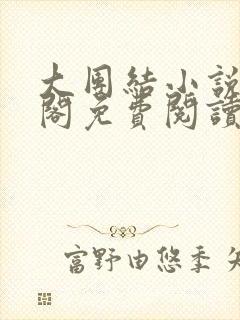 大團結小說
閣免費閱讀
富野由悠季 矢